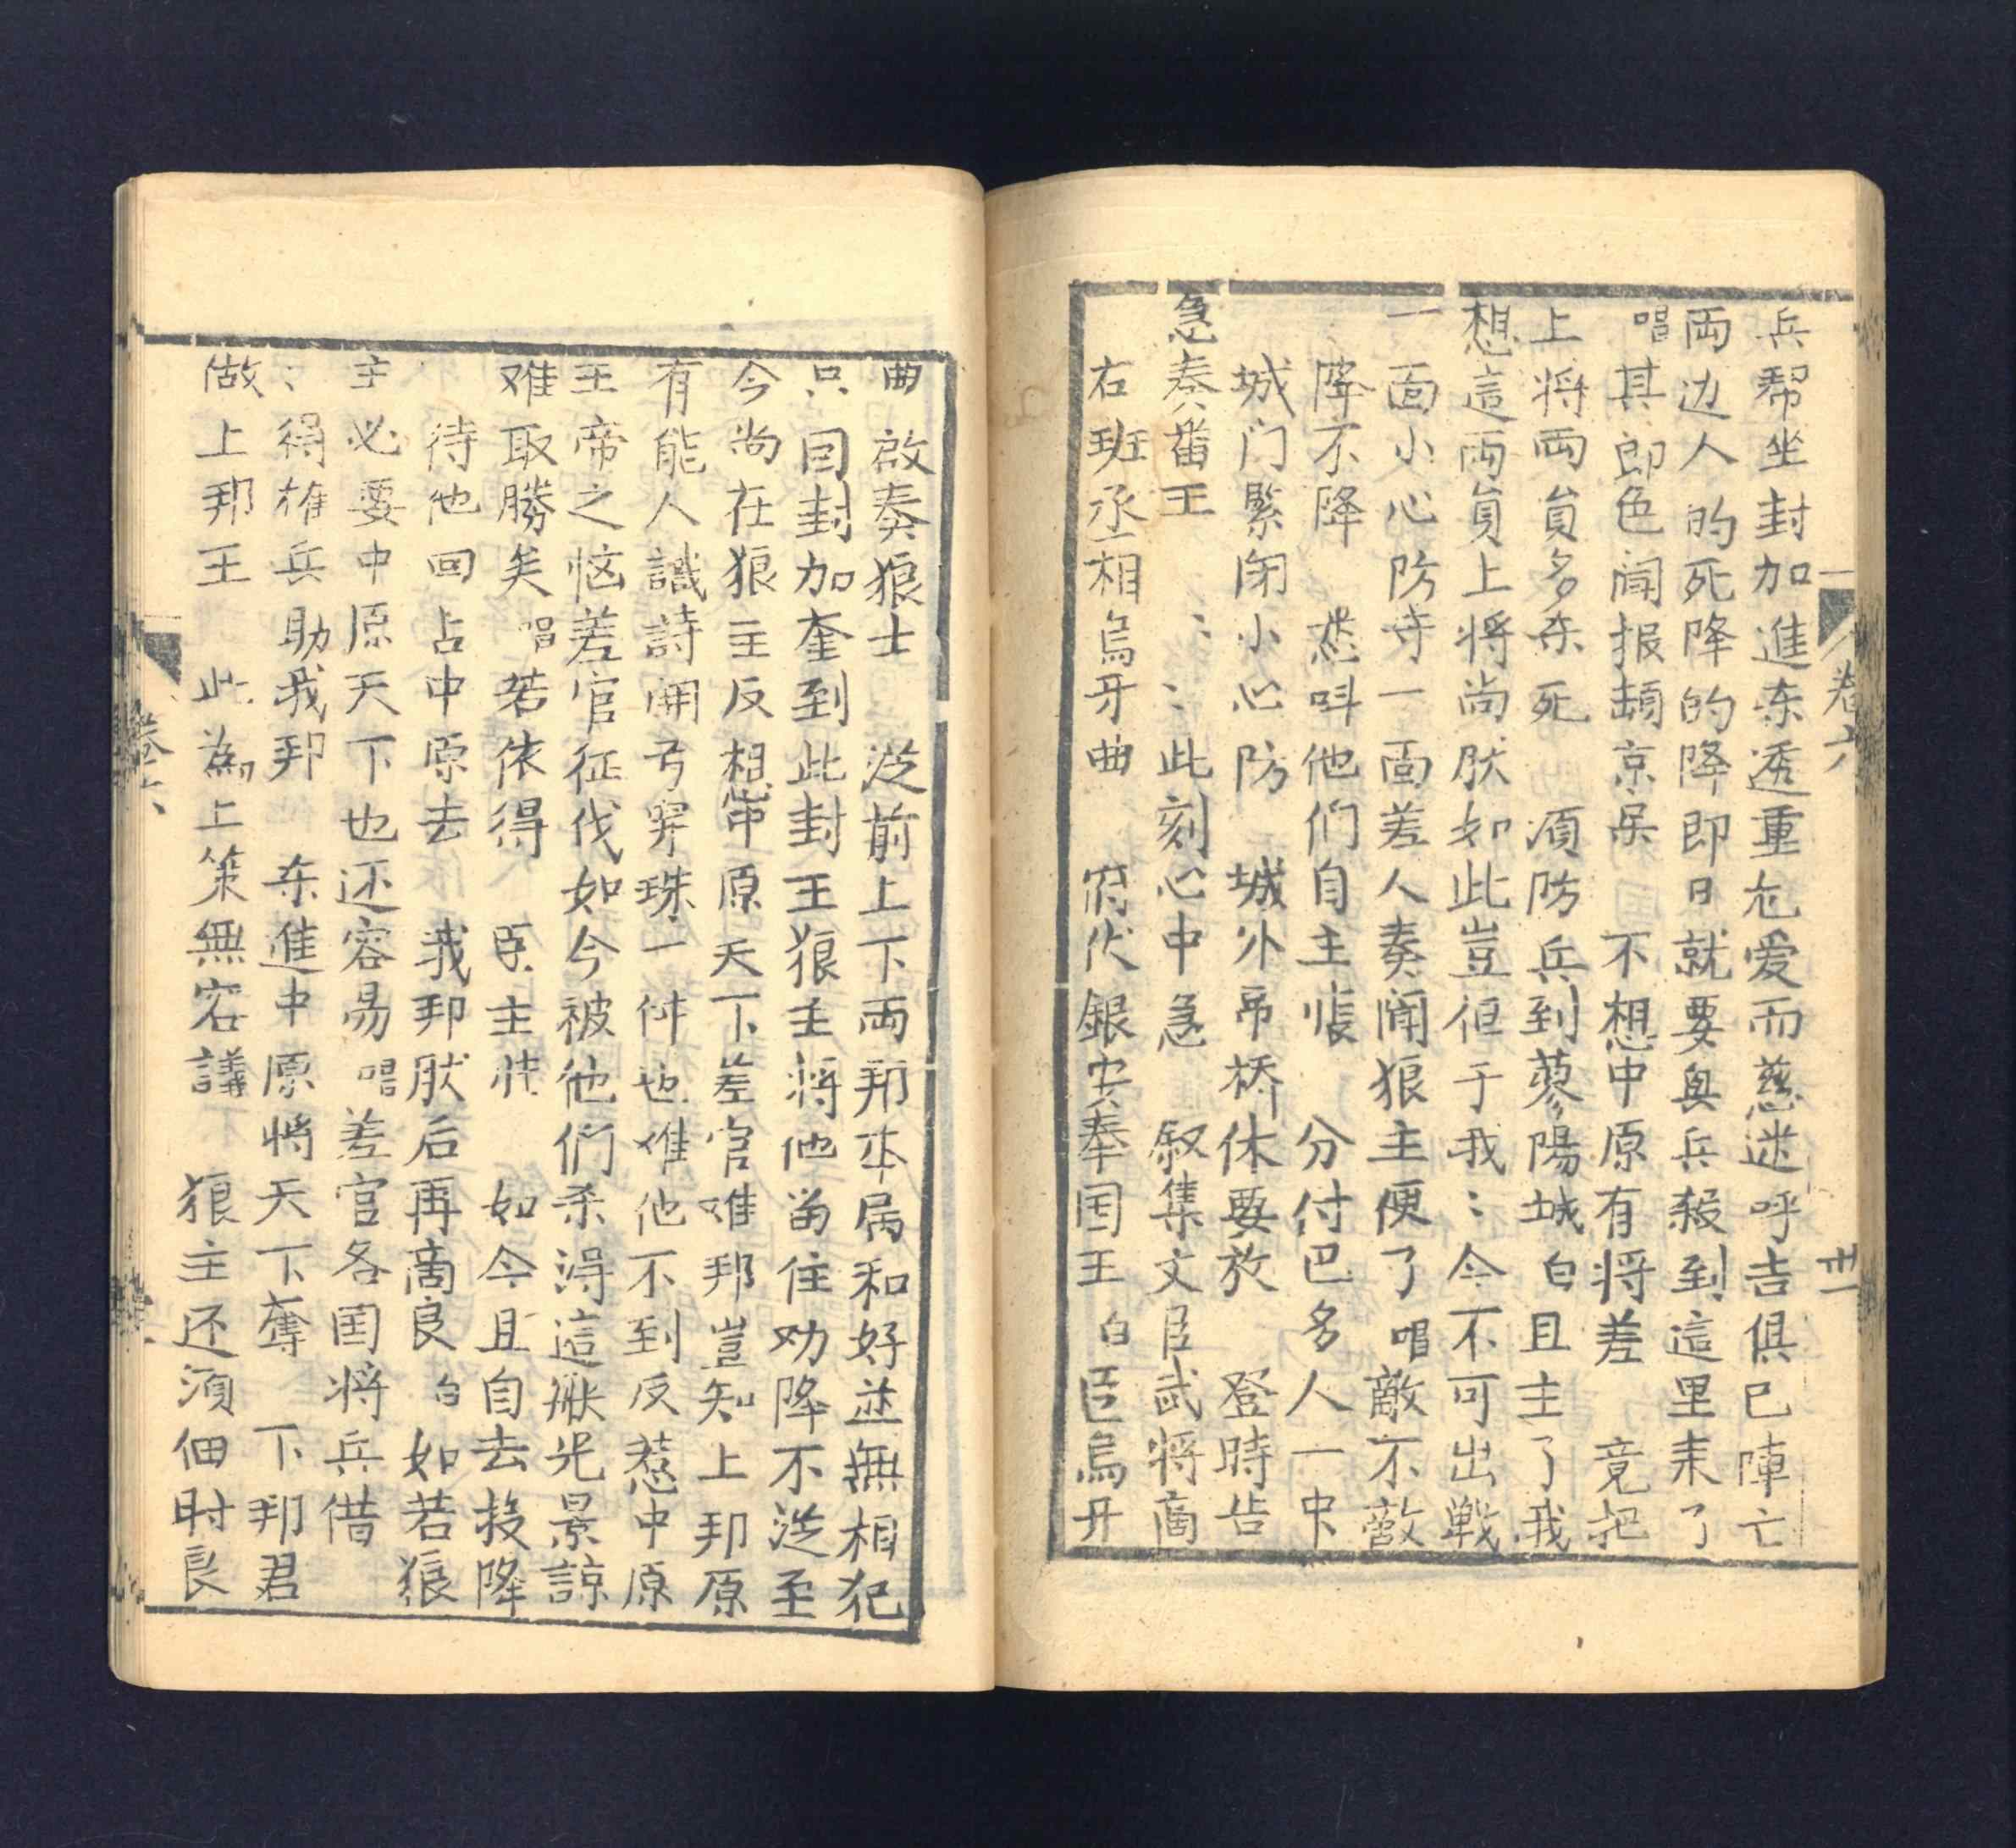 卷六 卅一
兵帮坐封加進东透重尤爱而慈逆呼吉俱已陣亡
両边人的死降的降即日就要與兵殺到這里耒了
唱其郎色闻报頡京呆 不想中原有将差 竟把
上将両員多杀死 湏防兵到蓼陽城白且主了我
想這両員上将尚肰如此豈但于我：今不可出戰
一面小心防守一面差人奏闻狼主便了唱敵不敵
降不降 悉呌他们自主張 分付巴多人一中
城门緊闭小心防 城外吊桥休要放 登時告
急奏番王 ：：此刻心中急 叙集文臣武将商
右班丞相烏牙曲 俯伏銀安奉国王白臣烏牙
曲 啟奏狼士 泛前上下両邦本属和好並無相犯
只回封加奎到此封王狼主将他留住劝降不泛至
今尚在狼主反想中原天下差官难邦豈知上邦原
有能人識詩開弓穿珠一件也难他不到反惹中原
王帝之恼差官征伐如今被他们杀得這般光景諒
难取勝矣唱若依得 臣主张 如今且自去投降
待他回占中原去 我邦肰后再商良白如若狼
主必要中原天下也还容易唱差官各国将兵借
：得雄兵助我邦 东進中原将天下奪 下邦君
做上邦王 此為上策無容議 狼主还湏佃时良
卷六